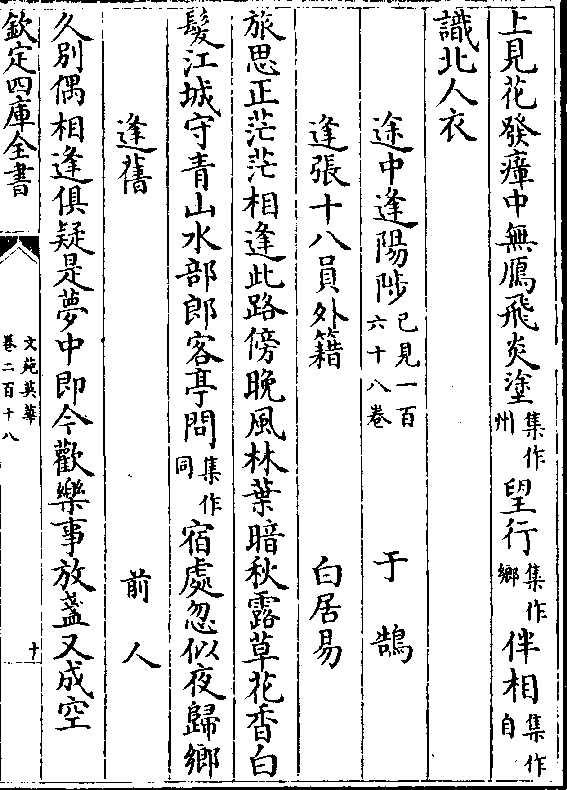 上見花發瘴中無鴈飛炎塗集作州望行集作鄉伴相集作自
識北人衣
途中逢陽陟已見一百六十八卷 于鵠
逢張十八員外籍 白居易
旅思正茫茫相逢此路傍晚風林葉暗秋露草花香白
髮江城守青山水部郎客亭問集作同宿處忽似夜歸鄉
逢舊 前人
久別偶相逢俱疑是夢中即今歡樂事放盞又成空
欽定四庫全書
文苑英華
卷二百十八
十